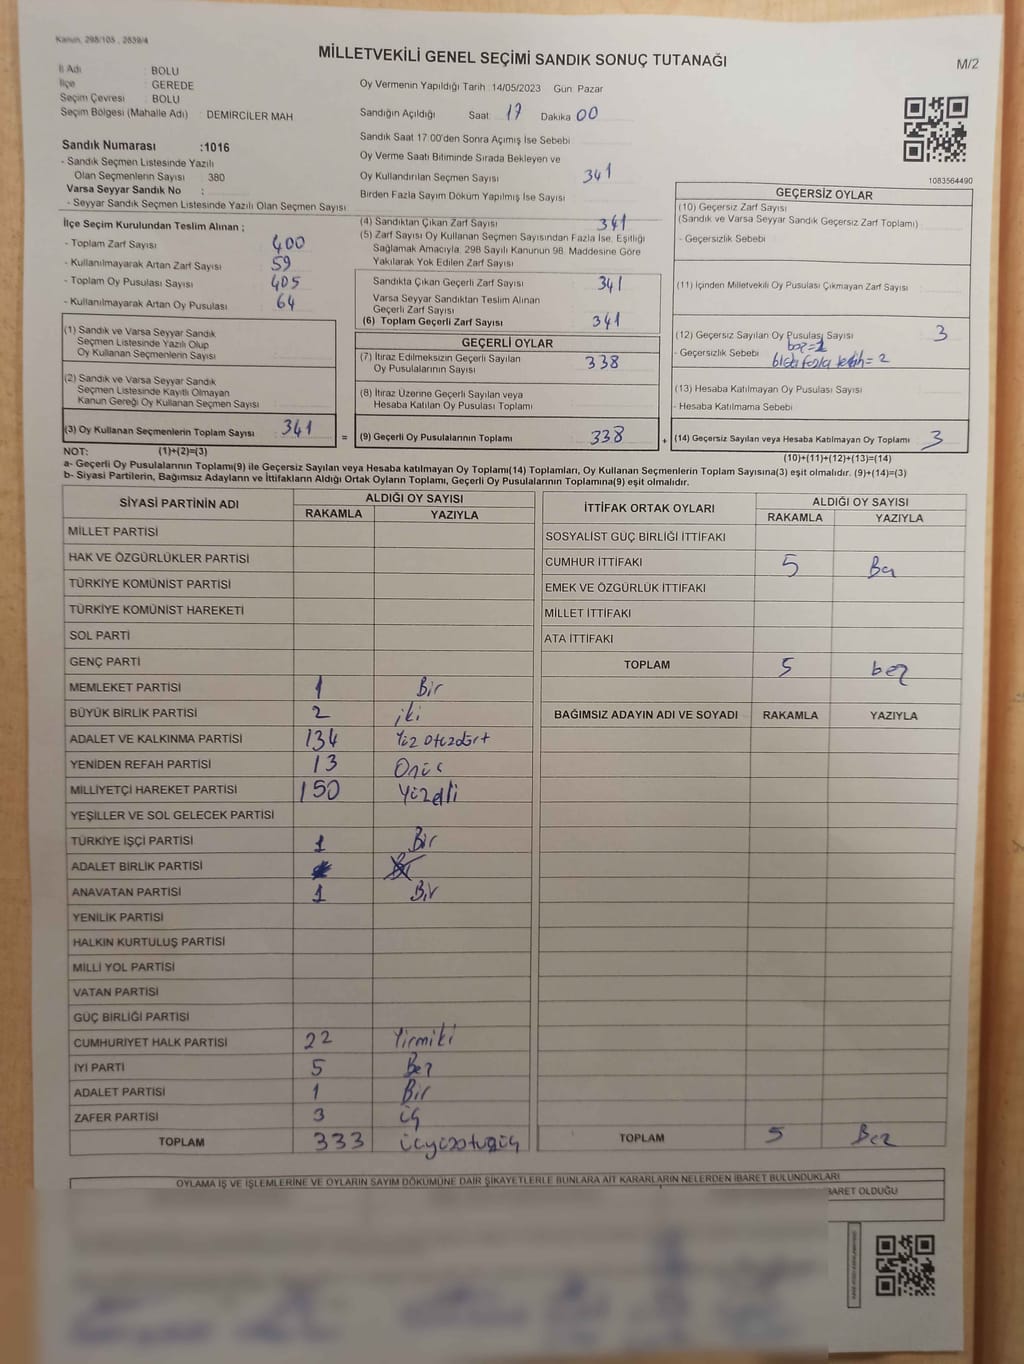 Kanun, 298/105 , 2839/4
MİLLETVEKİLİ GENEL SEÇİMİ SANDIK SONUÇ TUTANAĞI
M/2
İl Adı : BOLU
İlçe : GEREDE
Seçim Çevresi : BOLU
Seçim Bölgesi (Mahalle Adı) : DEMİRCİLER MAH
Sandık Numarası :1016
- Sandık Seçmen Listesinde Yazılı
Olan Seçmenlerin Sayısı : 380
Varsa Seyyar Sandık No :
- Seyyar Sandık Seçmen Listesinde Yazılı Olan Seçmen Sayısı
İlçe Seçim Kurulundan Teslim Alınan ;
- Toplam Zarf Sayısı : 400
- Kullanılmayarak Artan Zarf Sayısı : 59
- Toplam Oy Pusulası Sayısı : 405
- Kullanılmayarak Artan Oy Pusulası : 64
(1) Sandık ve Varsa Seyyar Sandık
Seçmen Listesinde Yazılı Olup
Oy Kullanan Seçmenlerin Sayısı :
(2) Sandık ve Varsa Seyyar Sandık
Seçmen Listesinde Kayıtlı Olmayan
Kanun Gereği Oy Kullanan Seçmen Sayısı :
(3) Oy Kullanan Seçmenlerin Toplam Sayısı : 341
Oy Vermenin Yapıldığı Tarih : 14/05/2023 Gün : Pazar
Sandığın Açıldığı Saat : 17 Dakika : 00
Sandık Saat 17:00'den Sonra Açımış İse Sebebi :
Oy Verme Saati Bitiminde Sırada Bekleyen ve
Oy Kullandırılan Seçmen Sayısı : 341
Birden Fazla Sayım Döküm Yapılmış İse Sayısı :
(4) Sandıktan Çıkan Zarf Sayısı : 341
(5) Zarf Sayısı Oy Kullanan Seçmen Sayısından Fazla İse, Eşitliği
Sağlamak Amacıyla, 298 Sayılı Kanunun 98. Maddesine Göre
Yakılarak Yok Edilen Zarf Sayısı :
Sandıkta Çıkan Geçerli Zarf Sayısı : 341
Varsa Seyyar Sandıktan Teslim Alınan
Geçerli Zarf Sayısı :
(6) Toplam Geçerli Zarf Sayısı : 341
GEÇERLİ OYLAR
(7) İtiraz Edilmeksizin Geçerli Sayılan
Oy Pusulalarının Sayısı : 338
(8) İtiraz Üzerine Geçerli Sayılan veya
Hesaba Katılan Oy Pusulası Toplamı :
= (9) Geçerli Oy Pusulalarının Toplamı : 338
1083564490
GEÇERSİZ OYLAR
(10) Geçersiz Zarf Sayısı :
(Sandık ve Varsa Seyyar Sandık Geçersiz Zarf Toplamı)
- Geçersizlik Sebebi :
(11) İçinden Milletvekili Oy Pusulası Çıkmayan Zarf Sayısı :
(12) Geçersiz Sayılan Oy Pusulası Sayısı : 3
- Geçersizlik Sebebi : boş=1
fazla = 2
(13) Hesaba Katılmayan Oy Pusulası Sayısı :
- Hesaba Katılmama Sebebi :
+ (14) Geçersiz Sayılan veya Hesaba Katılmayan Oy Toplamı : 3
NOT: (1)+(2)=(3)
(10)+(11)+(12)+(13)=(14)
a- Geçerli Oy Pusulalarının Toplamı(9) ile Geçersiz Sayılan veya Hesaba katılmayan Oy Toplamı(14) Toplamları, Oy Kullanan Seçmenlerin Toplam Sayısına(3) eşit olmalıdır. (9)+(14)=(3)
b- Siyasi Partilerin, Bağımsız Adayların ve İttifakların Aldığı Ortak Oyların Toplamı, Geçerli Oy Pusulalarının Toplamına(9) eşit olmalıdır.
SİYASİ PARTİNİN ADI ALDIĞI OY SAYISI
RAKAMLA YAZIYLA
MİLLET PARTİSİ
HAK VE ÖZGÜRLÜKLER PARTİSİ
TÜRKİYE KOMÜNİST PARTİSİ
TÜRKİYE KOMÜNİST HAREKETİ
SOL PARTİ
GENÇ PARTİ
MEMLEKET PARTİSİ 1 Bir
BÜYÜK BİRLİK PARTİSİ 2 iki
ADALET VE KALKINMA PARTİSİ 134 Yüz otuzdört
YENİDEN REFAH PARTİSİ 13 Onüç
MİLLİYETÇİ HAREKET PARTİSİ 150 Yüzelli
YEŞİLLER VE SOL GELECEK PARTİSİ
TÜRKİYE İŞÇİ PARTİSİ 1 Bir
ADALET BİRLİK PARTİSİ
ANAVATAN PARTİSİ 1 Bir
YENİLİK PARTİSİ
HALKIN KURTULUŞ PARTİSİ
MİLLİ YOL PARTİSİ
VATAN PARTİSİ
GÜÇ BİRLİĞİ PARTİSİ
CUMHURİYET HALK PARTİSİ 22 Yirmiki
İYİ PARTİ 5 Beş
ADALET PARTİSİ 1 Bir
ZAFER PARTİSİ 3 üç
TOPLAM 333 üçyüzotuzüç
İTTİFAK ORTAK OYLARI ALDIĞI OY SAYISI
RAKAMLA YAZIYLA
SOSYALİST GÜÇ BİRLİĞİ İTTİFAKI
CUMHUR İTTİFAKI 5 Beş
EMEK VE ÖZGÜRLÜK İTTİFAKI
MİLLET İTTİFAKI
ATA İTTİFAKI
TOPLAM 5 beş
BAĞIMSIZ ADAYIN ADI VE SOYADI RAKAMLA YAZIYLA
TOPLAM 5 Beş
OYLAMA İŞ VE İŞLEMLERİNE VE OYLARIN SAYIM DÖKÜMÜNE DAİR ŞİKAYETLERLE BUNLARA AİT KARARLARIN NELERDEN İBARET BULUNDUKLARI
BARET OLDUĞU